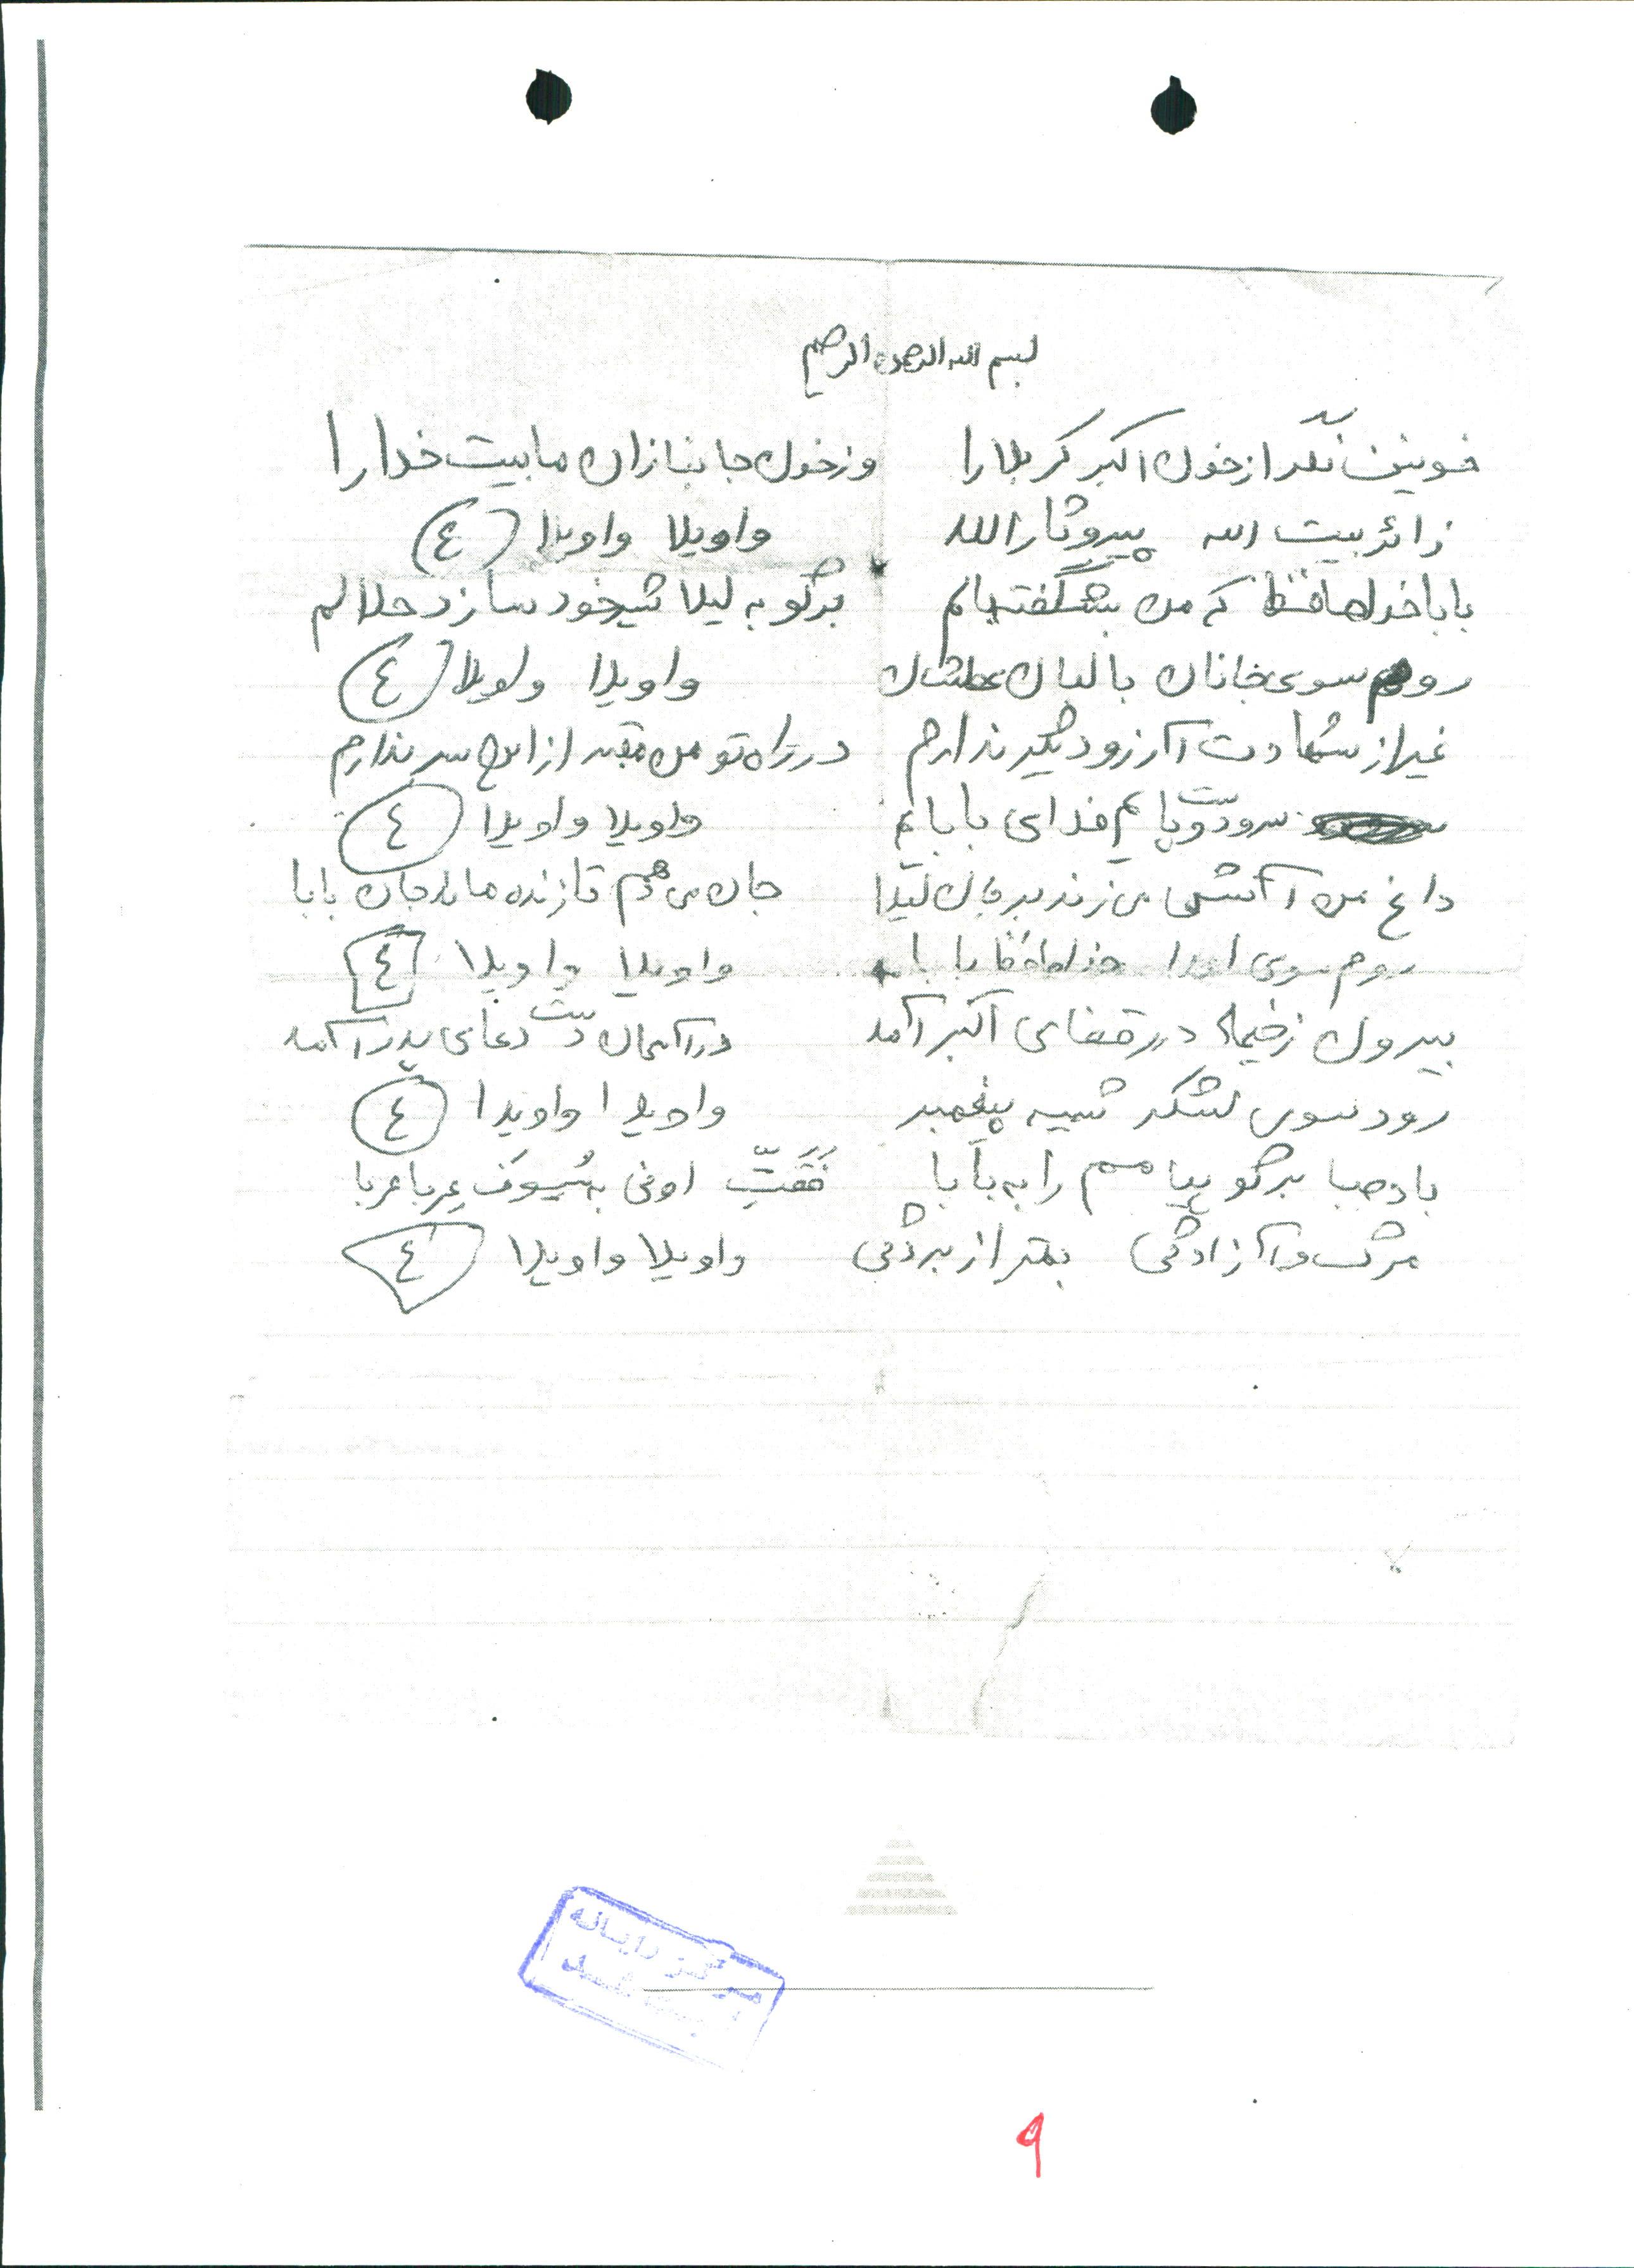 بسم الله الرحمن الرحیم
خونین نگر از خون اکبر کربلا را وز خون جانبازان ما بیت خدا را
زائر بیت الله پیرو ثارالله واویلا واویلا ٤
بابا خداحافظ که من بشگفته بالم برگو به لیلا شیر خود سازد حلالم
روم سوی جانان با لبان عطشان واویلا واویلا ٤
غیر از شهادت آرزو دیگر ندارم در راه تو من بهتر از این سر ندارم
سر و دست و پایم فدای بابایم واویلا واویلا ٤
داغ من آتش می زند بر جان لیلا جان می دهم تا زنده ماند جان بابا
روم سوی اعدا خداحافظ بابا واویلا واویلا ٤
بیرون ز خیمه در قفای اکبر آمد در آسمان دست دعای پدر آمد
رود سوی لشکر شبیه پیغمبر واویلا واویلا ٤
باد صبا برگو پیامم را به بابا اوفی به سیوف عربا عربا
مرگ و آزادگی بهتر از بردگی واویلا واویلا ٤
مرکز رایانه
۹